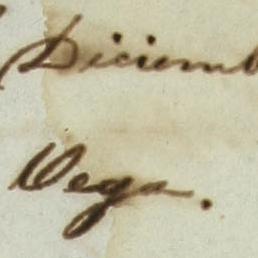 Diciemb
Vega.